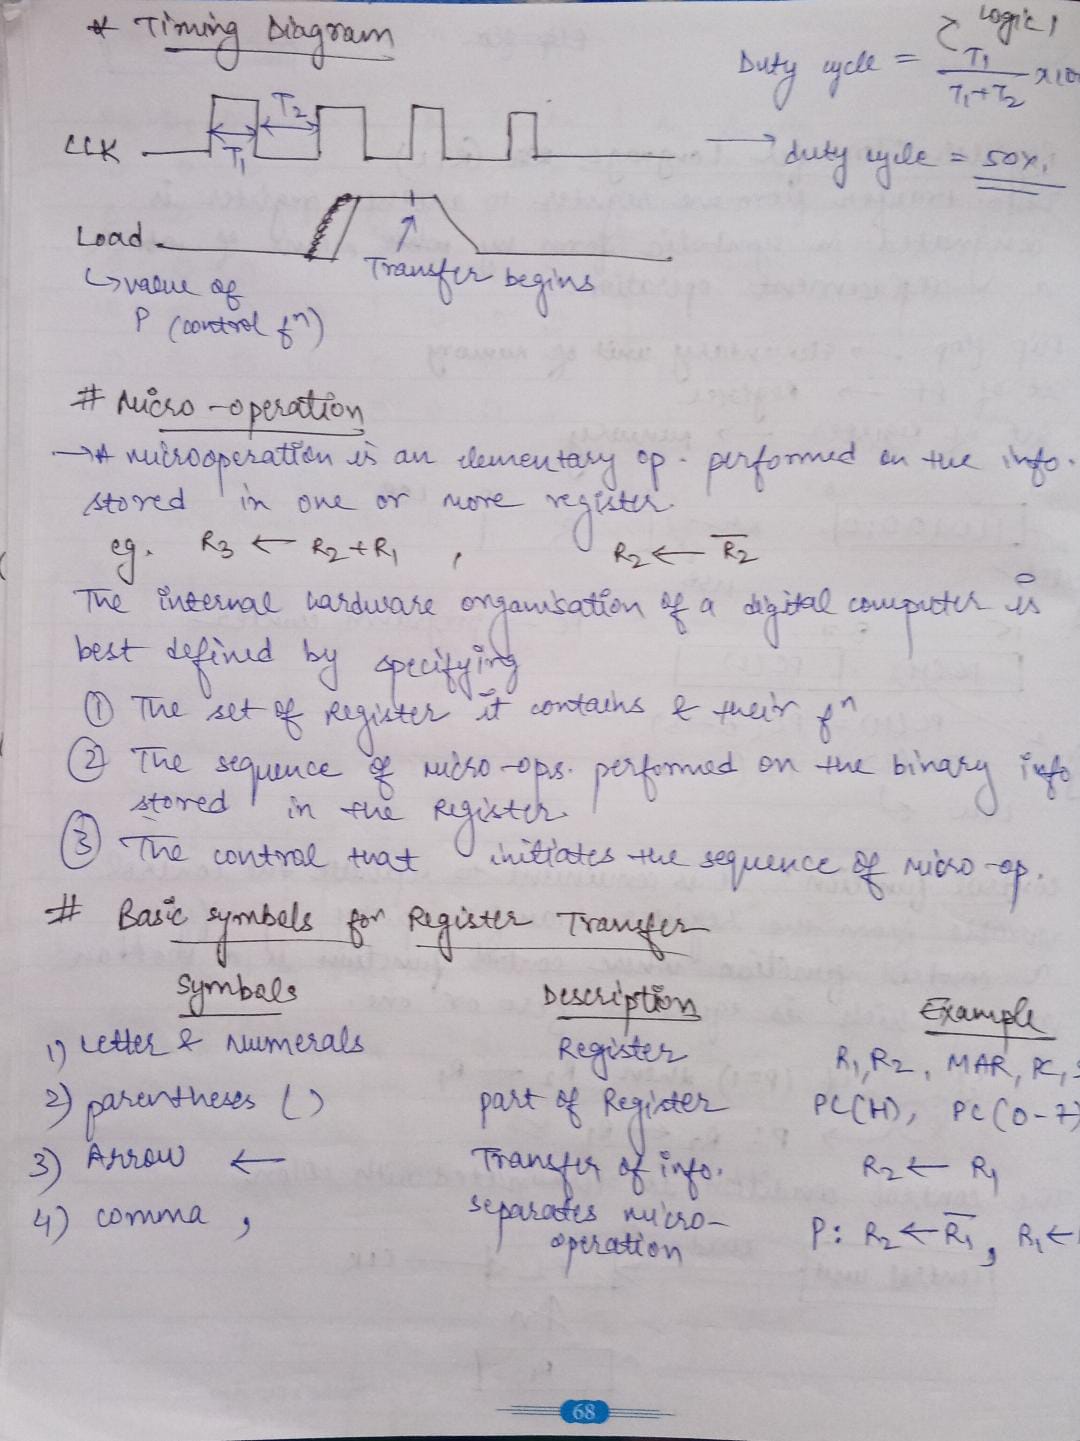 * Timing Diagram
Logic 1
Duty cycle = T₁ / T₁+T₂ x10
CLK T₁ T₂
→ duty cycle = 50%
Load
Transfer begins
↳ value of
P (control fⁿ)
# Micro-operation
→ A microoperation is an elementary op. performed on the info.
stored in one or more register.
eg. R₃ ← R₂+R₁ , R₂ ← R̅₂
The internal hardware organisation of a digital computer is
best defined by specifying
① The set of Register it contains & their fⁿ
② The sequence of micro-ops. performed on the binary info
stored in the Register.
③ The control that initiates the sequence of micro-op.
# Basic symbols for Register Transfer
Symbols Description Example
1) Letter & Numerals Register R₁, R₂, MAR, PC,
2) parentheses ( ) part of Register PC(H), PC(0-7)
3) Arrow ← Transfer of info. R₂ ← R₁
4) comma , separates micro-
operation P: R₂ ← R̅₁, R₁ ←
68